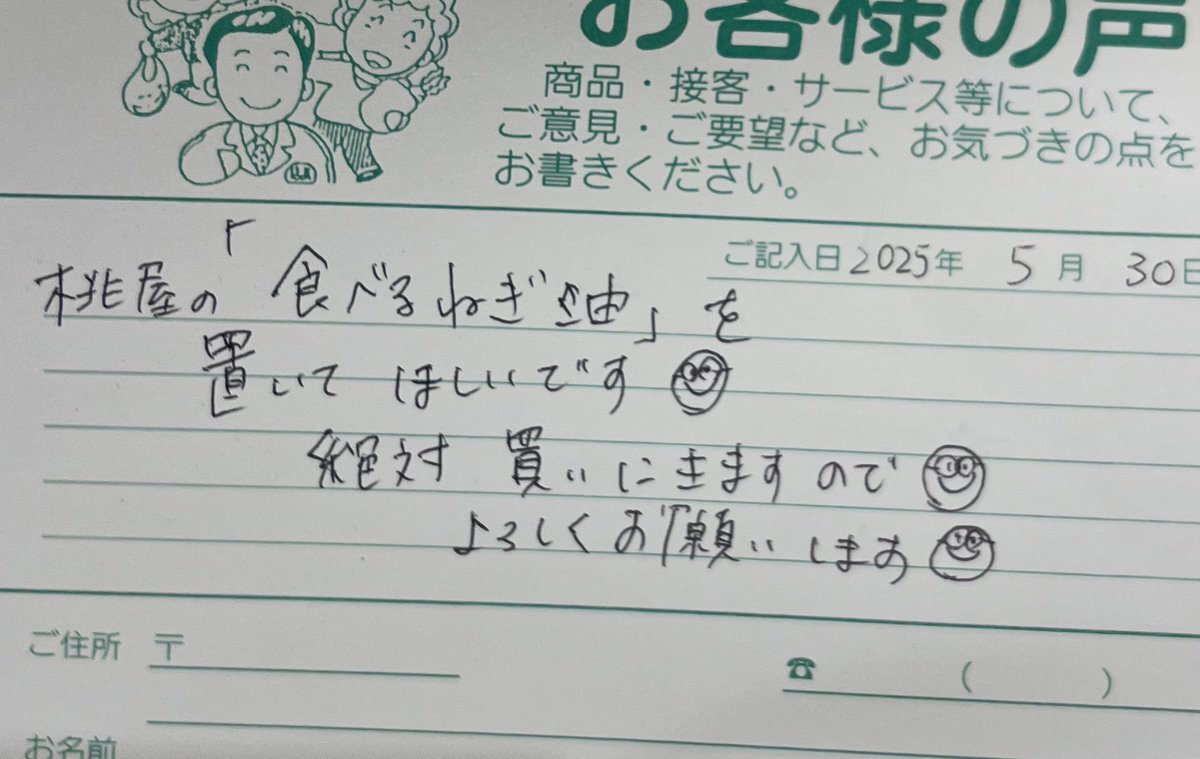 お客様の声
商品・接客・サービス等について、
ご意見・ご要望など、お気づきの点を
お書きください。
ご記入日 2025年 5月 30日
桃屋の「食べるねぎ油」を
置いてほしいです
絶対買いにきますので
よろしくお願いします
ご住所 〒
☎ ( )
お名前